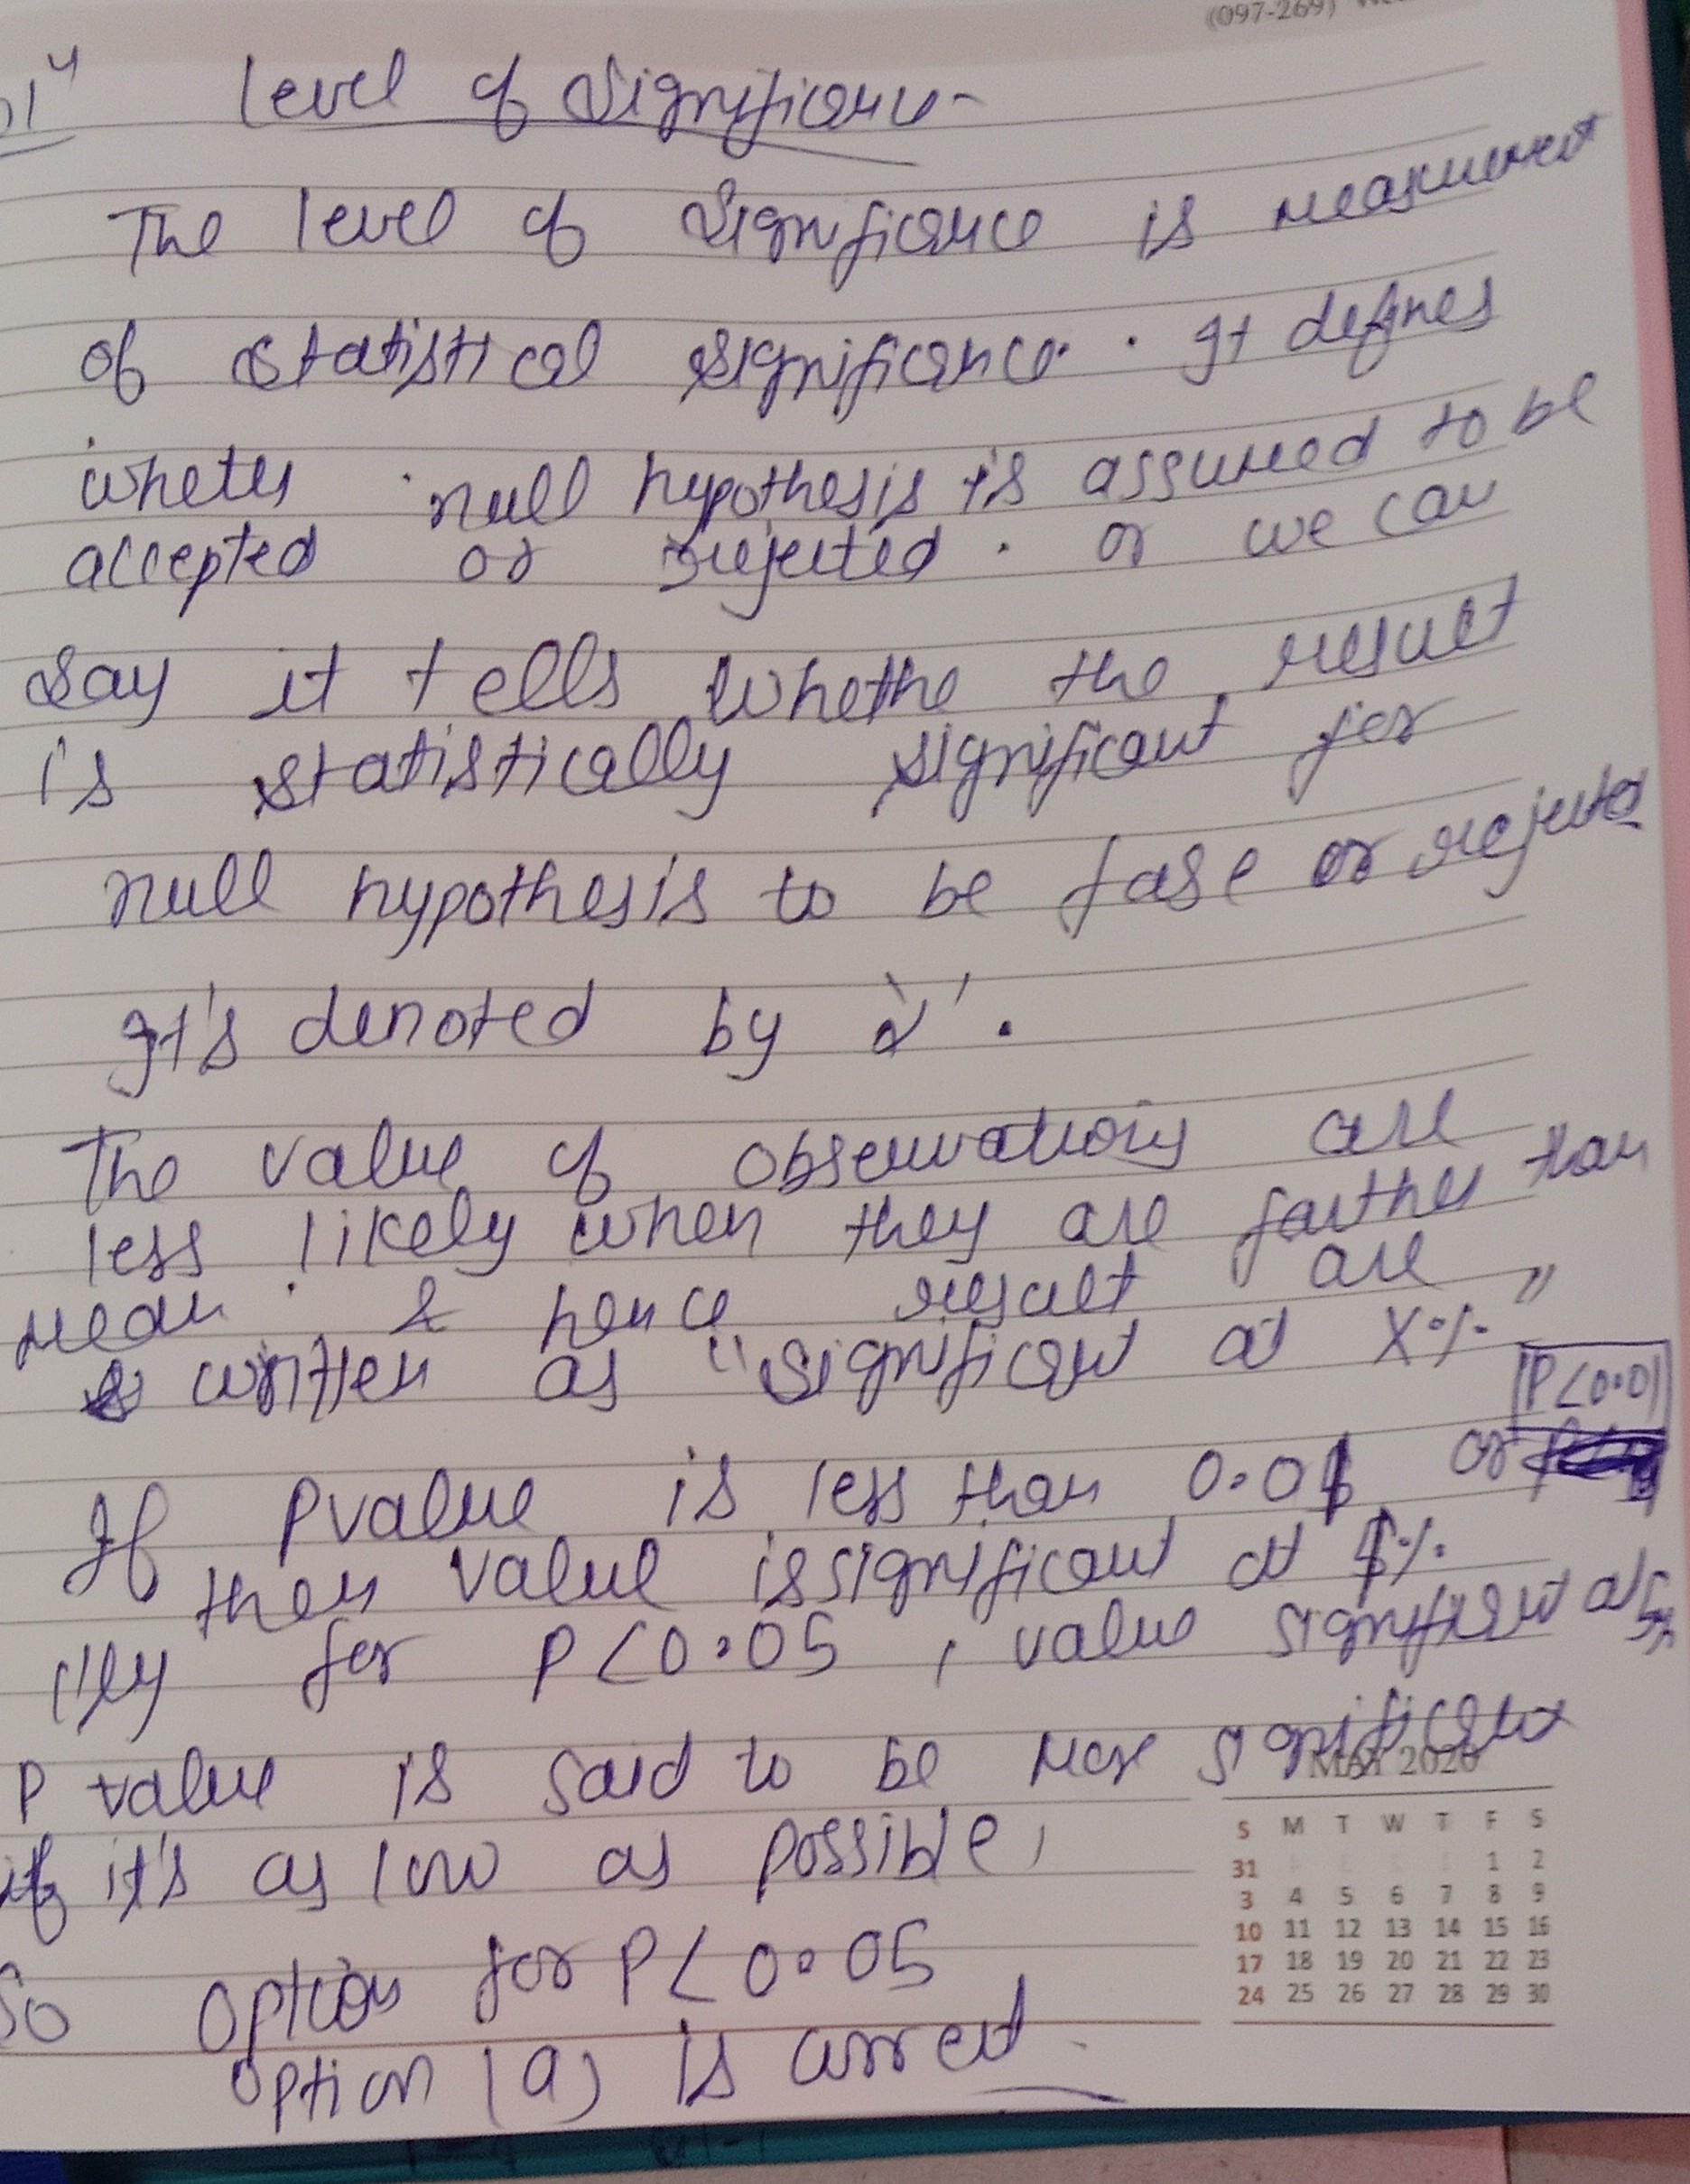 (097-269)
Level of Significance-
The level of Significance is measurment
of statistical significance. It defines
wheter null hypothesis is assumed to be
accepted or rejected. or we can
say it tells whethe the result
is statistically significant for
null hypothesis to be fase or rejected
It's denoted by 'α'.
The value of observations are
less likely when they are farther than
mean. & hence result are
written as "significant at X%"
P<0.01
If Pvalue is less than 0.01 or
then value is significant at 1%.
lly for P<0.05, value significant at 5%
P value is said to be more significant
if it's as low as possible,
So option for P<0.05
option (a) is correct
MAY 2020
S M T W T F S
31 1 2
3 4 5 6 7 8 9
10 11 12 13 14 15 16
17 18 19 20 21 22 23
24 25 26 27 28 29 30